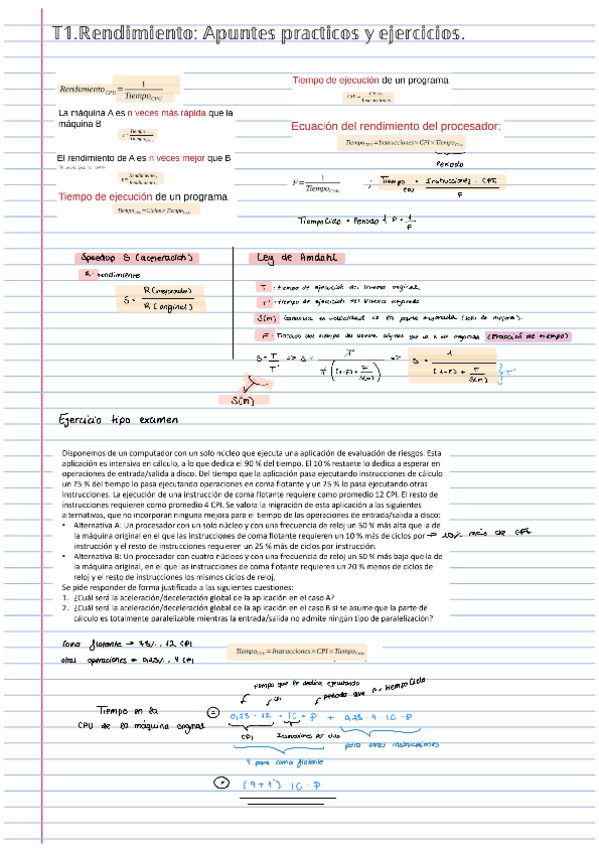 T1.Rendimiento: Apuntes practicos y ejercicios.
Rendimiento CPU = 1 / Tiempo CPU
La máquina A es n veces más rápida que la
máquina B
El rendimiento de A es n veces mejor que B
Tiempo de ejecución de un programa
Tiempo CPU = Ciclos × Tiempo
Tiempo de ejecución de un programa
CPI =
Ecuación del rendimiento del procesador:
Tiempo CPU = Instrucciones × CPI × Tiempo
Periodo
F = 1 / Tiempo ; Tiempo CPU = Instrucciones · CPI / F
Tiempo Ciclo = Periodo P = 1 / F
Speedup S (aceleración)
R = rendimiento
S = R(mejorado) / R(original)
Ley de Amdahl
T : tiempo de ejecución del sistema original.
T' : tiempo de ejecución del sistema mejorado
S(m)
F : (Fracción de tiempo)
S = T / T' => S = T / T ( (1-F) + F / S(m) ) => S = 1 / (1-F) + F / S(m) } T'
S(m)
Ejercicio tipo examen
Disponemos de un computador con un solo núcleo que ejecuta una aplicación de evaluación de riesgos. Esta
aplicación es intensiva en cálculo, a lo que dedica el 90 % del tiempo. El 10 % restante lo dedica a esperar en
operaciones de entrada/salida a disco. Del tiempo que la aplicación pasa ejecutando instrucciones de cálculo
un 75 % del tiempo lo pasa ejecutando operaciones en coma flotante y un 25 % lo pasa ejecutando otras
instrucciones. La ejecución de una instrucción de coma flotante requiere como promedio 12 CPI. El resto de
instrucciones requieren como promedio 4 CPI. Se valora la migración de esta aplicación a las siguientes
alternativas, que no incorporan ninguna mejora para el tiempo de las operaciones de entrada/salida a disco:
• Alternativa A: Un procesador con un solo núcleo y con una frecuencia de reloj un 50 % más alta que la de
la máquina original en el que las instrucciones de coma flotante requieren un 10 % más de ciclos por → 10% más de CPI
instrucción y el resto de instrucciones requieren un 25 % más de ciclos por instrucción.
• Alternativa B: Un procesador con cuatro núcleos y con una frecuencia de reloj un 50 % más baja que la de
la máquina original, en el que las instrucciones de coma flotante requieren un 20 % menos de ciclos de
reloj y el resto de instrucciones los mismos ciclos de reloj.
Se pide responder de forma justificada a las siguientes cuestiones:
1. ¿Cuál será la aceleración/deceleración global de la aplicación en el caso A?
2. ¿Cuál será la aceleración/deceleración global de la aplicación en el caso B si se asume que la parte de
cálculo es totalmente paralelizable mientras la entrada/salida no admite ningún tipo de paralelización?
Coma flotante → 12 CPI
otras operaciones → 0,25%, 4 CPI
Tiempo CPU = Instrucciones × CPI × Tiempo
tiempo que le dedica ejecutando
periodo que P = Tiempo Ciclo
Tiempo en la
CPU de la máquina original
= 12 · IC · P + 0,25 · 4 · IC · P
CPI
Instrucciones por ciclo
para otras instrucciones
T para coma flotante
= (9+1) IC · P